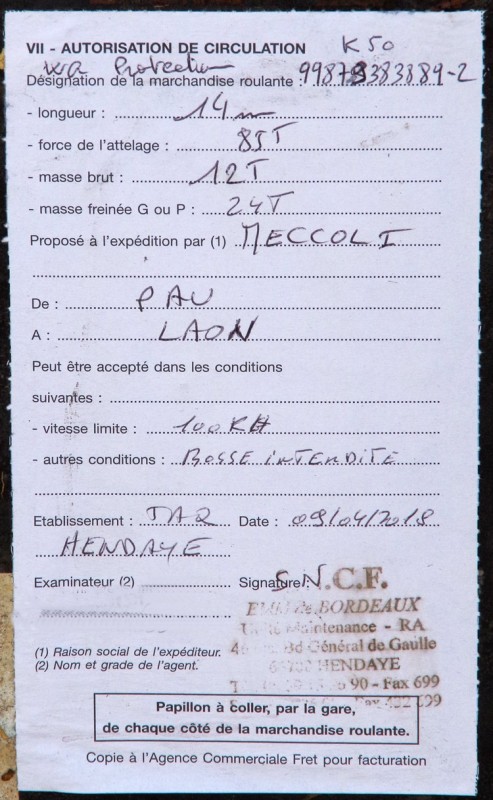 VII - AUTORISATION DE CIRCULATION K50
Protection
Désignation de la marchandise roulante : 99879383889-2
- longueur : 14 m
- force de l'attelage : 85T
- masse brut : 12T
- masse freinée G ou P : 24T
Proposé à l'expédition par (1) MECCOLI
De : PAU
A : LAON
Peut être accepté dans les conditions
suivantes :
- vitesse limite : 100KH
- autres conditions : BOSSE INTERDITE
Etablissement : Date : 09/04/2018
HENDAYE
Examinateur (2) Signature
S.N.C.F.
BORDEAUX
Maintenance - RA
Bd Général de Gaulle
HENDAYE
90 - Fax 699
(1) Raison social de l'expéditeur.
(2) Nom et grade de l'agent.
Papillon à coller, par la gare,
de chaque côté de la marchandise roulante.
Copie à l'Agence Commerciale Fret pour facturation